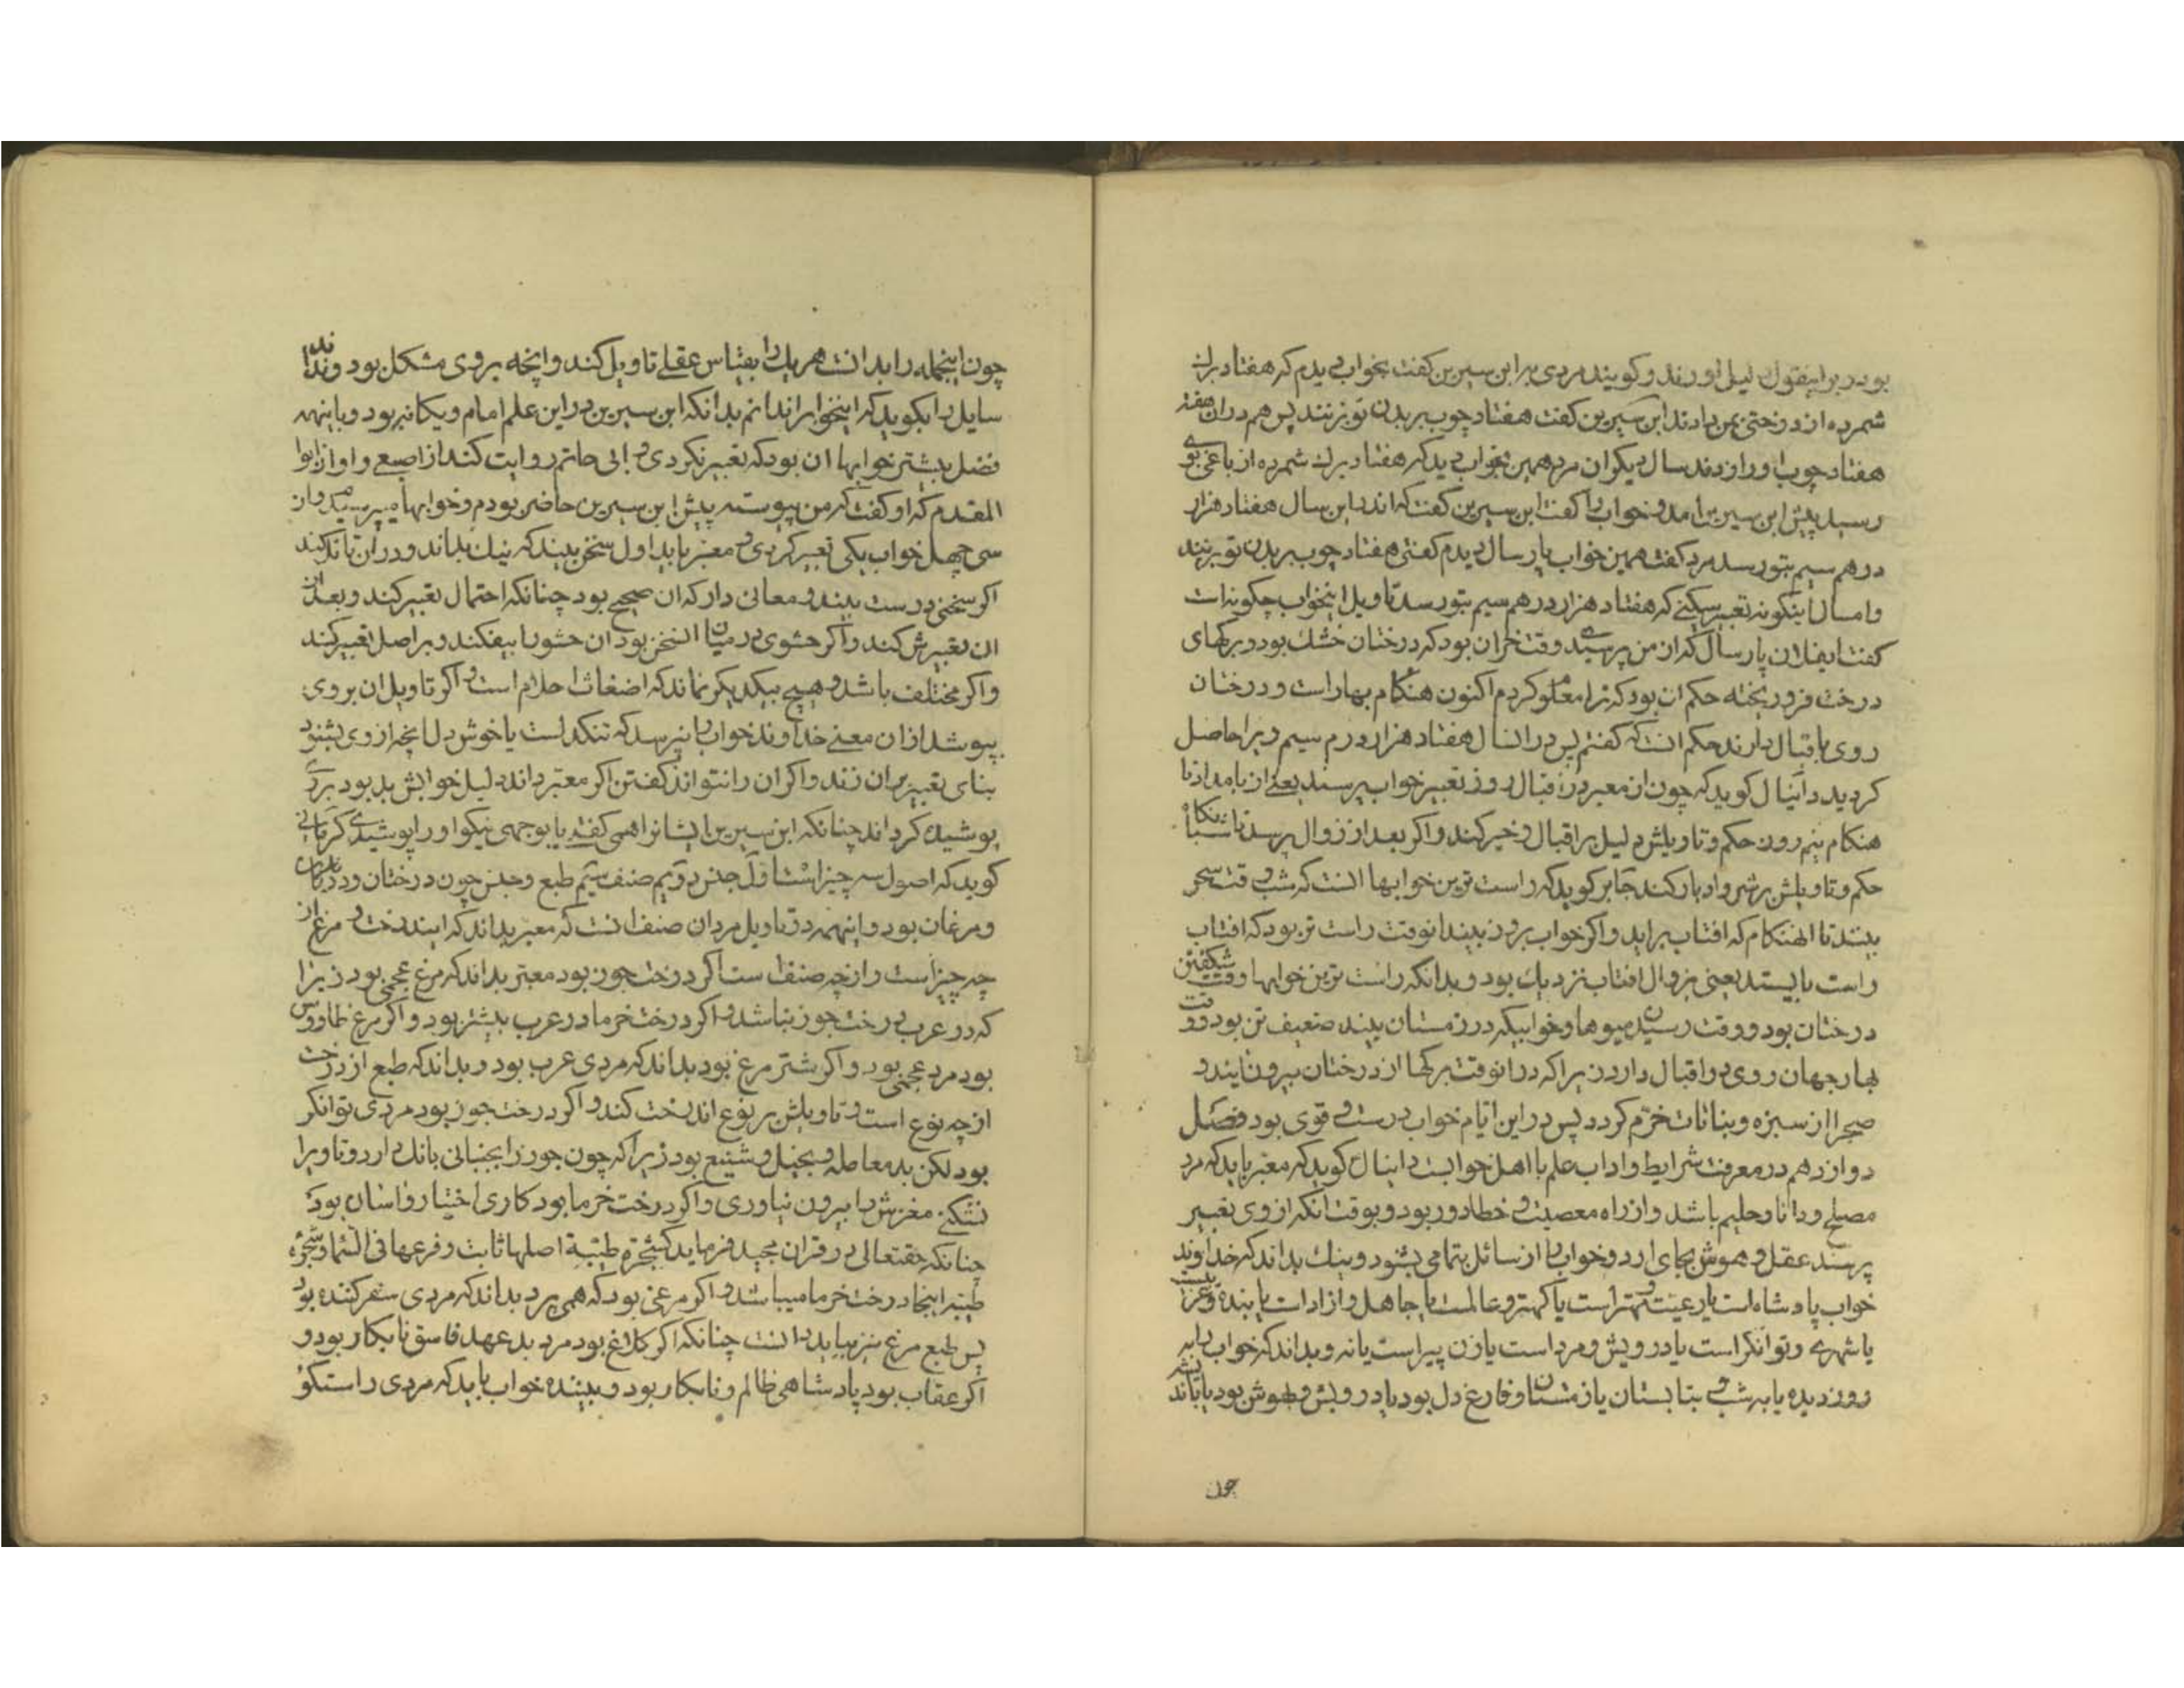 بود و بر اینقول لیل اورند و کویند مردی بر ابن سیرین کفت بخواب دیدم که هفتاد برك
شمرده از درختی بمن دادند ابن سیرین کفت هفتاد چوب بر بدن تو زنند پس هم در ان هفته
هفتاد چوب او را زدند سال دیکر ان مرد همین بخواب دید که هفتاد برك شمرده از باغی بوی
رسید پیش ابن سیرین امد و خواب را کفت ابن سیرین کفت که اندر این سال هفتاد هزار
درهم سیم بتو رسد مرد کفت همین خواب پار سال دیدم کفتی هفتاد چوب بر بدن تو زنند
و امسال اینکونه تعبیر میکنی که هفتاد هزار درهم سیم بتو رسد تاویل اینخواب چکونه است
کفت ایفلان پار سال که از من پرسیدی وقت خزان بود که درختان خشك بود و برکهای
درخت فرو ریخته حکم ان بود که ترا معلوم کردم اکنون هنکام بهار است و درختان
روی باقبال دارند حکم انست که کفتم پس در انسال هفتاد هزار درم سیم ویرا حاصل
کردید دانیال کوید که چون از معبر در اقبال روز تعبیر خواب پرسند یعنی از بامداد تا
هنکام نیم روز حکم و تاویلش دلیل بر اقبال و خیر کند و اکر بعد از زوال پرسد تا شبانکاه
حکم و تاویلش بر شر و ادبار کند جابر کوید که راست ترین خوابها انست که شب وقت سحر
بینند تا انهنکام که افتاب براید و اکر خواب بروز بیند انوقت راست تر بود که افتاب
راست بایستد یعنی بزوال افتاب نزدیك بود و بدانکه راست ترین خوابها وقت شکفتن
درختان بود و وقت رسیدن میوها و خوابیکه در زمستان بیند ضعیف تر بود و وقت
بهار جهان روی در اقبال دارد زیرا که در انوقت برکها از درختان بیرون ایند و
صحرا از سبزه و بناتات خرم کردد پس در این ایام خواب درست و قوی بود فصل
دوازدهم در معرفت شرایط و اداب علم با اهل خوابست دانیال کوید که معبر باید که مرد
مصلح و دانا و حلیم باشد و از راه معصیت و خطا دور بود و بوقت انکه از وی تعبیر
پرسند عقل و هوش بجای ارد و خواب را از سائل بتمامی بشنود و نیك بداند که خداوند
خواب پادشاه است یا رعیت و مهتر است یا کهتر و عالمست یا جاهل و ازاد است یا بنده و غریبست
یا شهری و توانکر است یا درویش و مرد است یا زن پیر است یا نه و بداند که خواب را به
روز دیده یا به شب و بتابستان یا زمستان و فارغ دل بود یا در رویش و بهوش بود یا باندیشه
چون
چون اینجمله را بدانست هر یك را بقیاس عقلی تاویل کند و انچه بر وی مشکل بود و نداند
سایل را بکوید که اینخواب را ندانم بدانکه ابن سیرین در این علم امام و یکانه بود و با اینهمه
فضل بیشتر خوابها ان بود که تعبیر نکردی و ابی حاتم روایت کند از اصمعی و او از ابوا
المقدم که او کفت که من پیوسته پیش ابن سیرین حاضر بودم و خوابها میپرسیدند و از
سی چهل خواب یکی تعبیر کردی و معبر باید اول سخن بیند که نیك بداند و در ان تا ند کند
اکر سخنی درست بیند و معانی دار که ان صحیح بود چنانکه احتمال تعبیر کند و بعد از
ان تعبیرش کند و اکر حشوی در میان السخن بود ان حشو را بیفکند و بر اصل تعبیر کند
و اکر مختلف باشد و هیچ بیکدیکر نماند که اضغاث احلام است و اکر تاویل ان بر وی
بپوشد از ان معنی خداوند خواب را بپرسد که تنکدلست یا خوش دل انچه از وی بشنود
بنای تعبیر بران زند و اکر ان را نتواند کفتن اکر معبر داند دلیل خوابش بد بود بر وی
پوشیده کرداند چنانکه ابن سیرین ایشانرا همی کفت یا بوجهی نیکو او را پوشیدی کرمانی
کوید که اصول سه چیز است اول جنس دویم صنف سیم طبع و جنس چون درختان و ددکان
و مرغان بود و اینهمه در تاویل مردان صنف انست که معبر بداند که ایندرخت و مرغ از
چه چیز است و از چه صنف است اکر درخت جوز بود معبر بداند که مرغ عجمی بود زیرا
که در عرب درخت جوز نباشد و اکر درخت خرما در عرب بیشتر بود و اکر مرغ طاووس
بود مرد عجمی بود و اکر شتر مرغ بود بداند که مردی عرب بود و بداند که طبع از درخت
از چه نوع است و تاویلش بر نوع اندرخت کند و اکر درخت جوز بود مردی توانکر
بود لکن بد معامله و بخیل و شنیع بود زیرا که چون جوز را بجنبانی بانك دارد و تا ویرا
نشکنی مغزش را بیرون نیاوری و اکر درخت خرما بود کاری اختیار و اسان بود
چنانکه حقتعالی در قران مجید فرماید کشجرة طیبة اصلها ثابت و فرعها فی السماء و شجرۀ
طیبه اینجا درخت خرما میباشد و اکر مرغی بود که همی پرد بداند که مردی سفر کننده بود
پس طبع مرغ نیز بباید دانست چنانکه اکر کلاغ بود مرد بد عهد فاسق نابکار بود و
اکر عقاب بود پادشاهی ظالم و نابکار بود و بیننده خواب باید که مردی راستکو